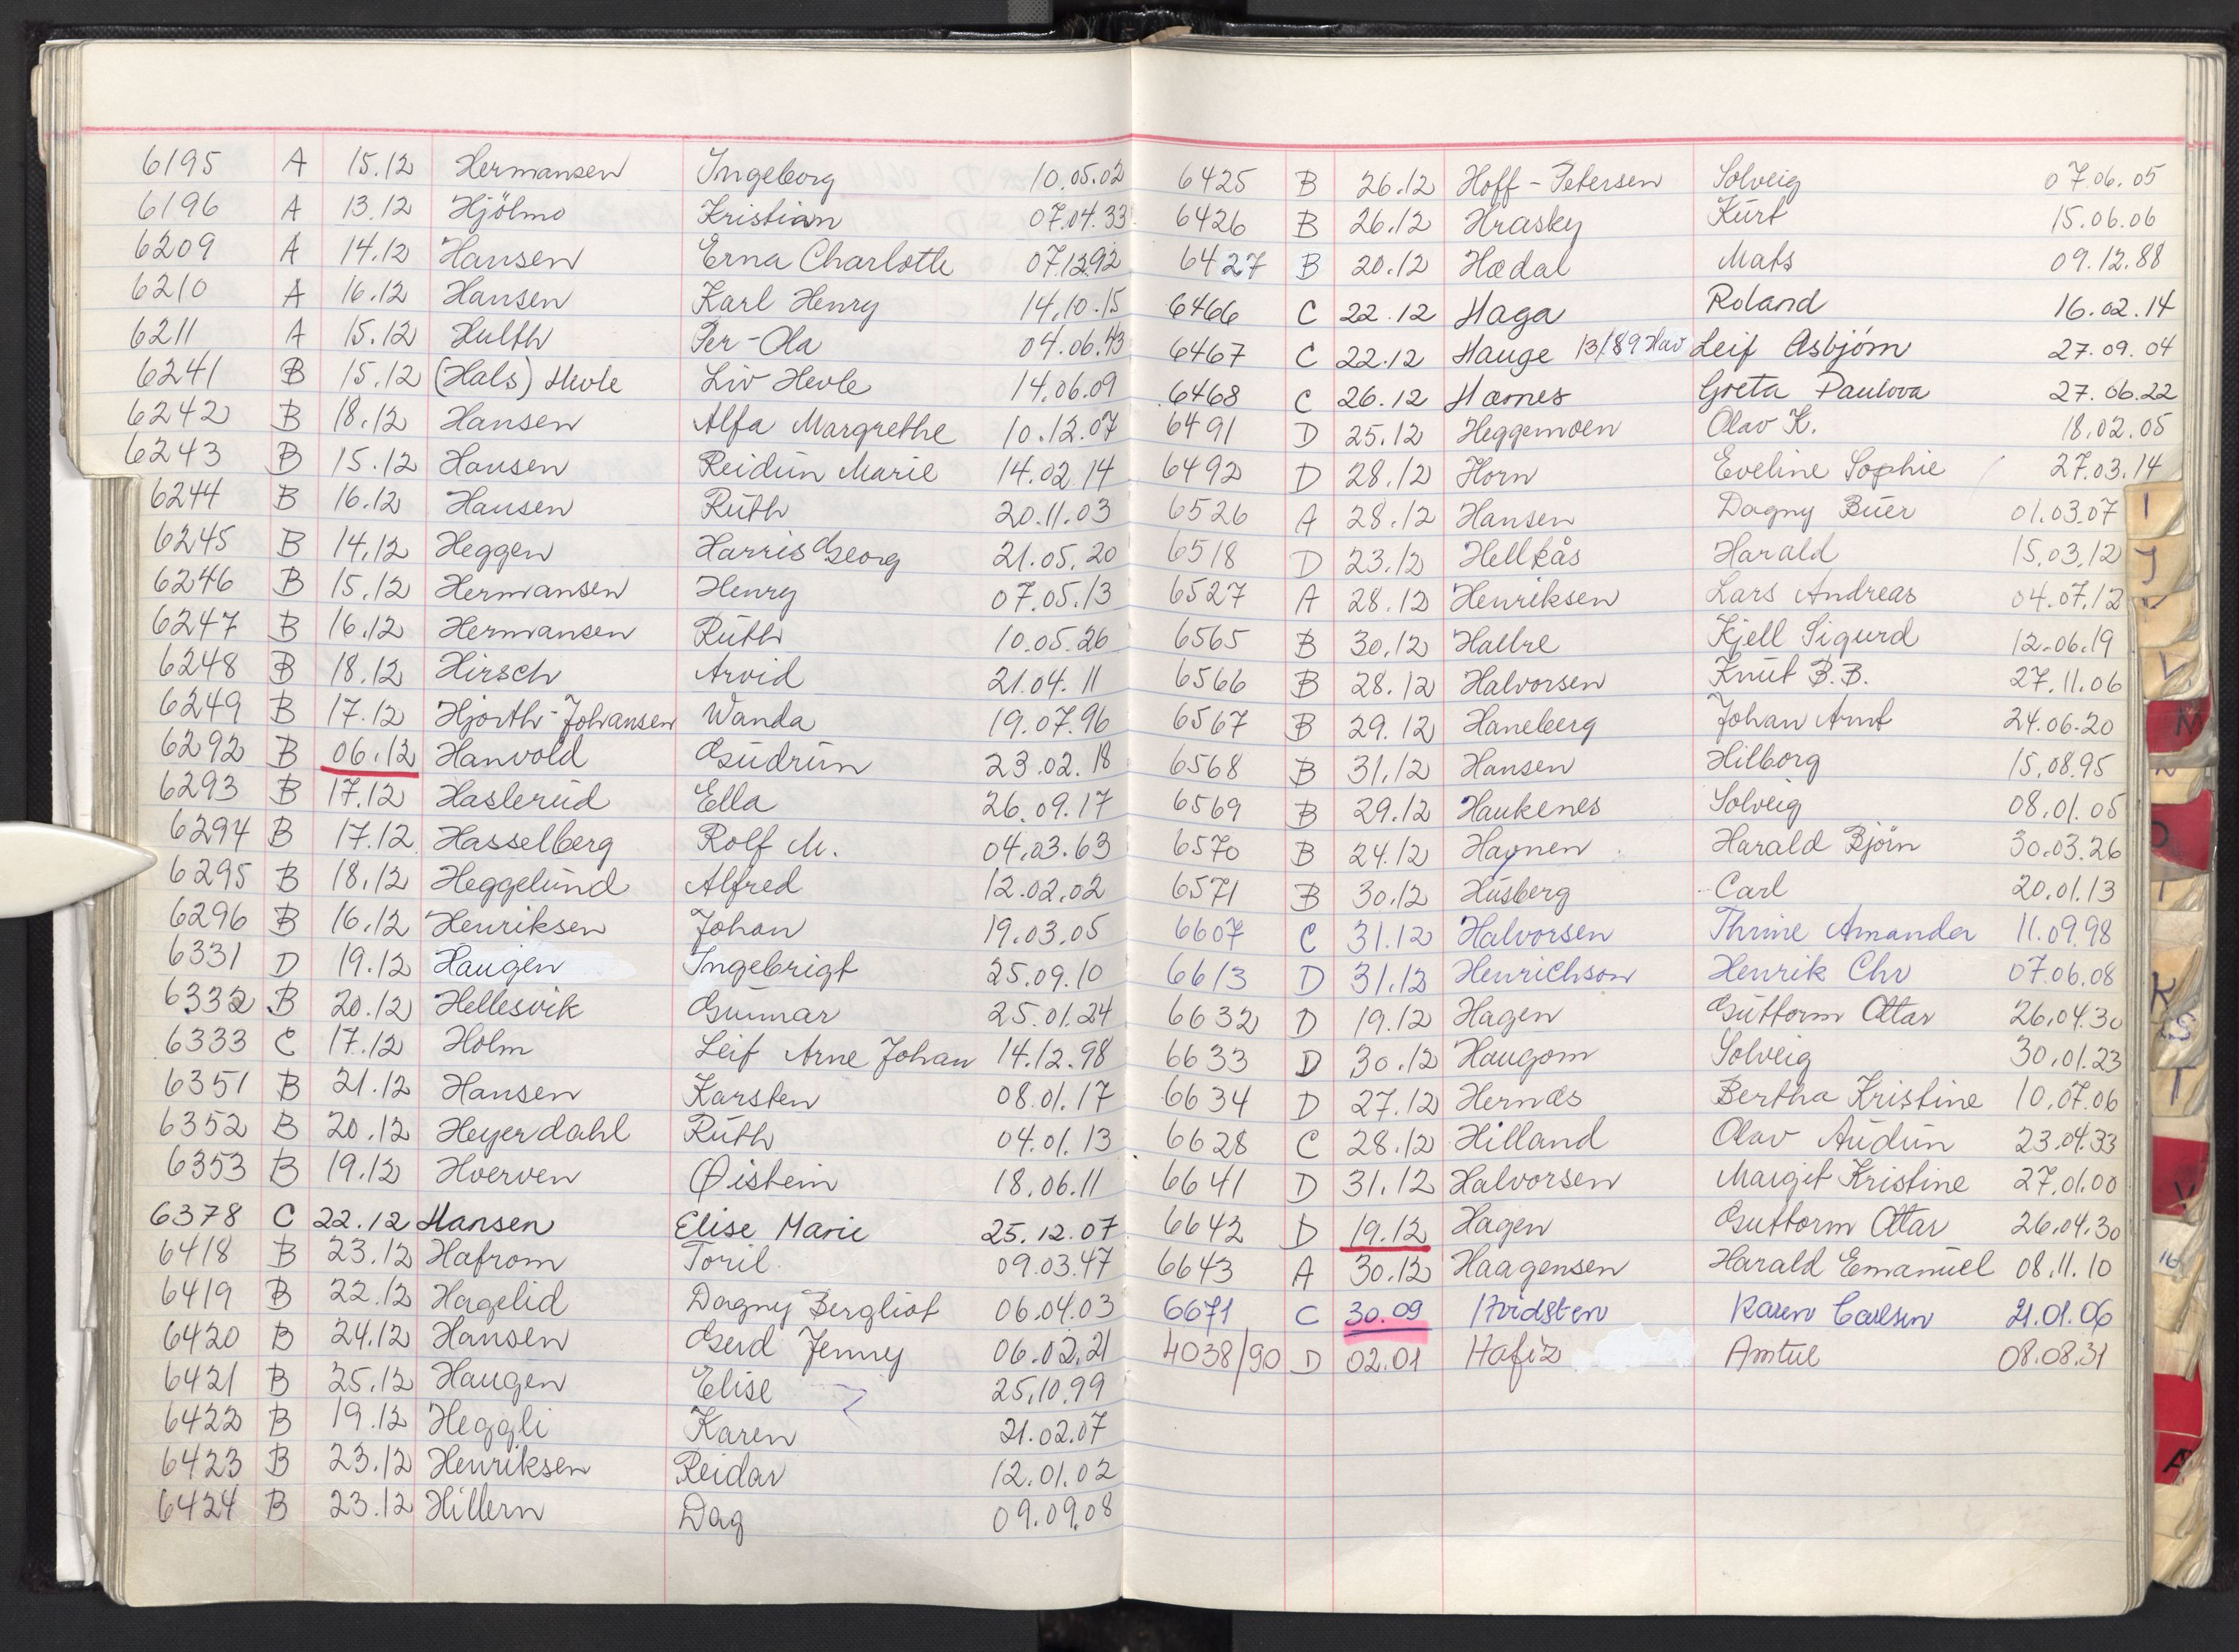 6195 A 15.12 Hermansen Ingeborg 10.05.02
6196 A 13.12 Hjölmo Kristian 07.04.33
6209 A 14.12 Hansen Erna Charlotte 07.12.92
6210 A 16.12 Hansen Karl Henry 14.10.15
6211 A 15.12 Hulth Per-Ola 04.06.43
6241 B 15.12 (Hals) Hevle Liv Hevle 14.06.09
6242 B 18.12 Hansen Alfa Margrethe 10.12.07
6243 B 15.12 Hansen Reidun Marie 14.02.14
6244 B 16.12 Hansen Ruth 20.11.03
6245 B 14.12 Heggen Harris Georg 21.05.20
6246 B 15.12 Hermansen Henry 07.05.13
6247 B 16.12 Hermansen Ruth 10.05.26
6248 B 18.12 Hirsch Arvid 21.04.11
6249 B 17.12 Hjorth-Johansen Wanda 19.07.96
6292 B 06.12 Hanvold Gudrun 23.02.18
6293 B 17.12 Haslerud Ella 26.09.17
6294 B 17.12 Hasselberg Rolf M. 04.03.63
6295 B 18.12 Heggelund Alfred 12.02.02
6296 B 16.12 Henriksen Johan 19.03.05
6331 D 19.12 Haugen Ingebrigt 25.09.10
6332 B 20.12 Hellesvik Gunnar 25.01.24
6333 C 17.12 Holm Leif Arne Johan 14.12.98
6351 B 21.12 Hansen Karsten 08.01.17
6352 B 20.12 Heyerdahl Ruth 04.01.13
6353 B 19.12 Hverven Øistein 18.06.11
6378 C 22.12 Hansen Elise Marie 25.12.07
6418 B 23.12 Hafrom Toril 09.03.47
6419 B 22.12 Hagelid Dagny Bergliot 06.04.03
6420 B 24.12 Hansen Gerd Jenny 06.02.21
6421 B 25.12 Haugen Elise 25.10.99
6422 B 19.12 Heggli Karen 21.02.07
6423 B 23.12 Henriksen Reidar 12.01.02
6424 B 23.12 Hillern Dag 09.09.08
6425 B 26.12 Hoff-Petersen Solveig 07.06.05
6426 B 26.12 Hrasky Kurt 15.06.06
6427 B 20.12 Hædal Mats 09.12.88
6466 C 22.12 Haga Roland 16.02.14
6467 C 22.12 Hauge 13/89 Leif Asbjörn 27.09.04
6468 C 26.12 Hæmes Greta Paulova 27.06.22
6491 D 25.12 Heggemoen Olav K. 18.02.05
6492 D 28.12 Horn Eveline Sophie 27.03.14
6526 A 28.12 Hansen Dagny Buer 01.03.07
6518 D 23.12 Hellkås Harald 15.03.12
6527 A 28.12 Henriksen Lars Andreas 04.07.12
6565 B 30.12 Hallre Kjell Sigurd 12.06.19
6566 B 28.12 Halvorsen Knut B.B. 27.11.06
6567 B 29.12 Haneberg Johan Arnt 24.06.20
6568 B 31.12 Hansen Hilborg 15.08.95
6569 B 29.12 Haukenes Solveig 08.01.05
6570 B 24.12 Haynen Harald Björn 30.03.26
6571 B 30.12 Husberg Carl 20.01.13
6607 C 31.12 Halvorsen Thrine Amanda 11.09.98
6613 D 31.12 Henrichson Henrik Chr 07.06.08
6632 D 19.12 Hagen Guttorm Ottar 26.04.30
6633 D 30.12 Haugom Solveig 30.01.23
6634 D 27.12 Hernæs Bertha Kristine 10.07.06
6628 C 28.12 Hilland Olav Audun 23.04.33
6641 D 31.12 Halvorsen Margit Kristine 27.01.00
6642 D 19.12 Hagen Guttorm Ottar 26.04.30
6643 A 30.12 Haagensen Harald Emanuel 08.11.10
6671 C 30.09 Hvidsten Karen Carlsen 21.01.06
4038/90 D 02.01 Hafiz Amtul 08.08.31